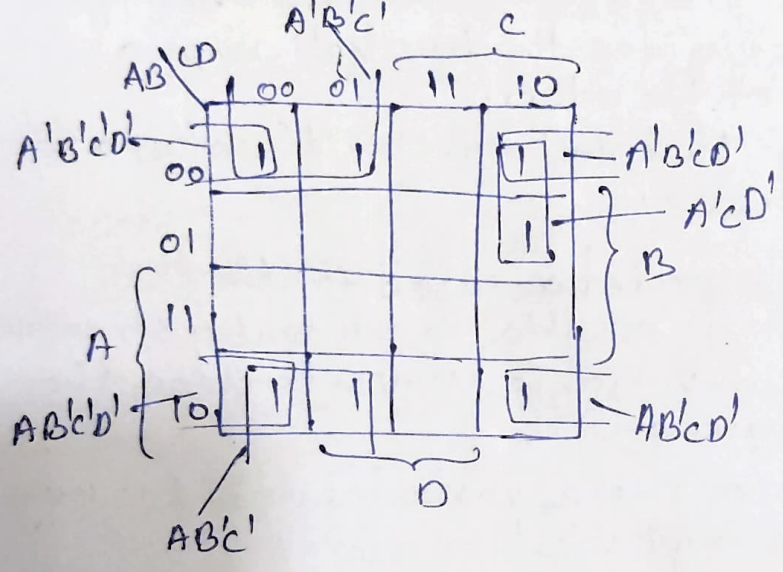 A'B'C'
C
AB CD
00 01 11 10
A'B'C'D'
00 1 1 1
A'B'CD'
A'CD'
01 1
B
11
A
AB'C'D'
10 1 1 1
AB'CD'
D
AB'C'